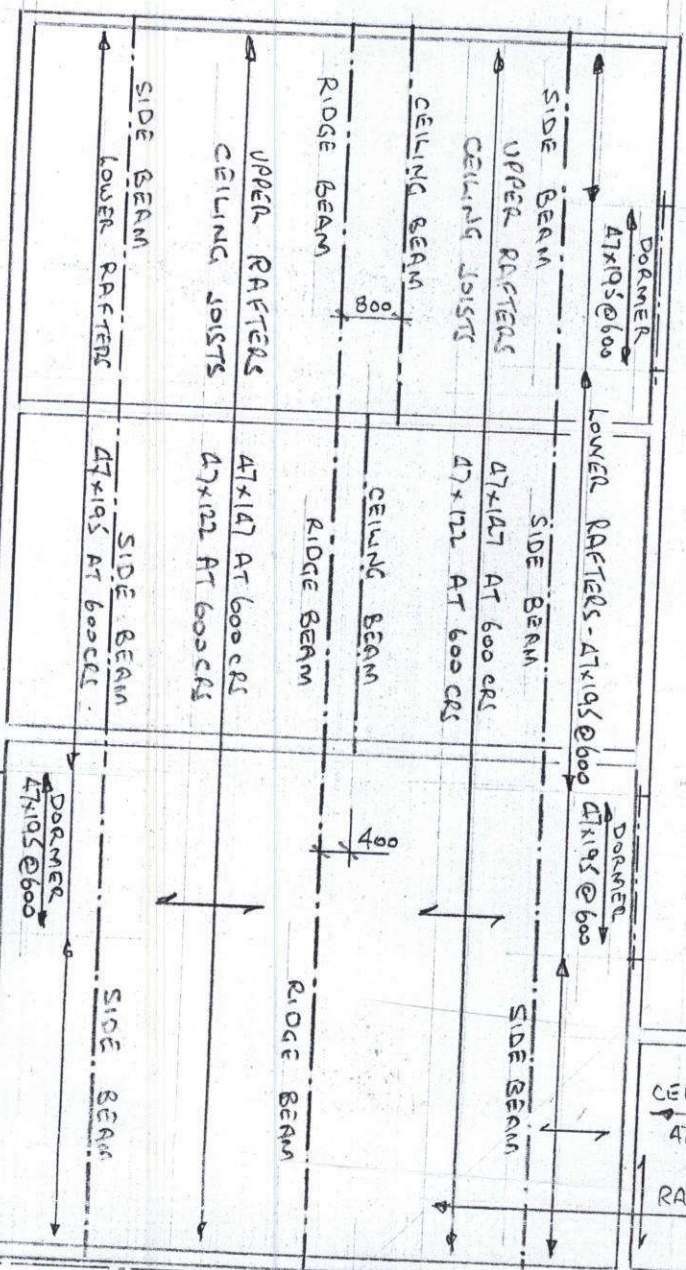 DORMER
47x195@600
LOWER RAFTERS - 47x195@600
DORMER
47x195@600
SIDE BEAM
SIDE BEAM
SIDE BEAM
UPPER RAFTERS
47x147 AT 600 CRS
CEILING JOISTS
47x122 AT 600 CRS
CEILING BEAM
CEILING BEAM
800
400
RIDGE BEAM
RIDGE BEAM
RIDGE BEAM
UPPER RAFTERS
47x147 AT 600 CRS
CEILING JOISTS
47x122 AT 600 CRS
SIDE BEAM
SIDE BEAM
SIDE BEAM
LOWER RAFTERS
47x195 AT 600 CRS.
DORMER
47x195@600